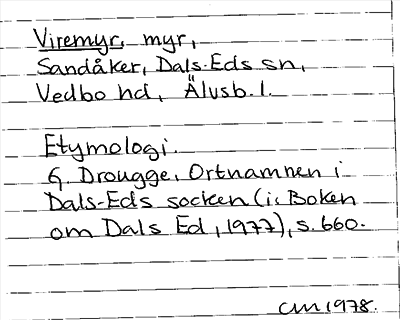 Viremyr, myr,
Sandåker, Dals-Eds sn,
Vedbo hd, Älvsb. l.
Etymologi.
G. Drougge, Ortnamnen i
Dals-Eds socken (i: Boken
om Dals Ed, 1977), s. 660.
CM 1978.